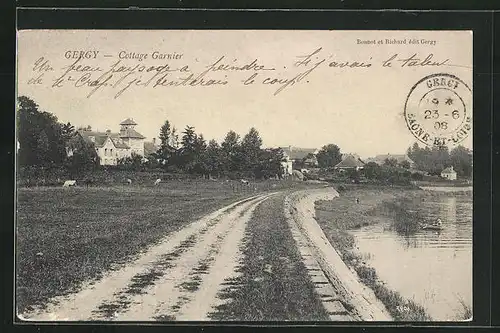 GERGY — Cottage Garnier
Bonnot et Richard édit Gergy
Un beau paysage à peindre. Si j'avais le talent
de je tenterais le coup.
GERGY
19 *
23-6
08
SAÔNE-ET-LOIRE